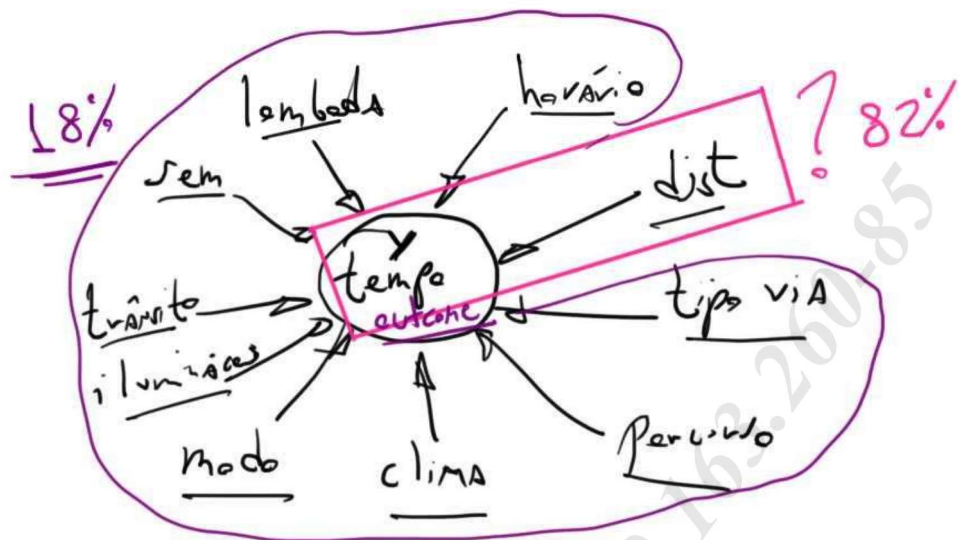 18%
lombada
horário
? 82%
sem
dist
Y
tempo
outcome
trânsito
tipo via
modo
clima
percurso
163.260-85